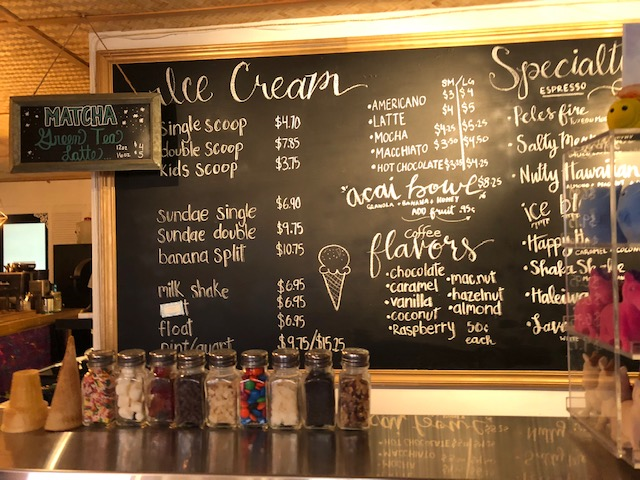 MATCHA
Green Tea
Latte
12oz 4
16oz 5
Ice Cream
single scoop $4.70
double scoop $7.85
kids scoop $3.75
sundae single $6.90
sundae double $9.75
banana split $10.75
milk shake $6.95
$6.95
float $6.95
pint/quart $9.75/$15.25
SM/LG
•AMERICANO $3 $4
•LATTE $4 $5
•MOCHA $4.25 $5.25
•MACCHIATO $3.50 $4.50
•HOT CHOCOLATE $3.25 $4.25
acai bowl $8.25
GRANOLA • BANANA • HONEY
ADD fruit .75¢
Coffee
flavors
•chocolate
•caramel
•vanilla
•coconut
•Raspberry
•mac.nut
•hazelnut
•almond
50¢
each
Specialty
ESPRESSO
•Peles fire
•Salty
•Nutty Hawaiian
ice
•Happy
•Shaka
•Haleiwa